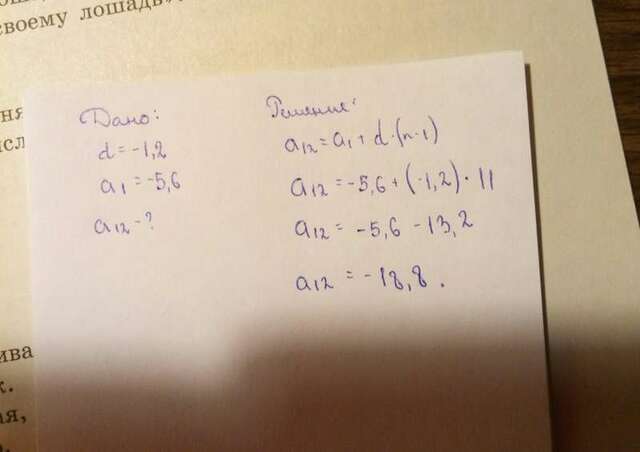 своему лошадь
Дано:
d = -1,2
a₁ = -5,6
a₁₂ - ?
Решение:
a₁₂ = a₁ + d · (n - 1)
a₁₂ = -5,6 + (-1,2) · 11
a₁₂ = -5,6 - 13,2
a₁₂ = -18,8.